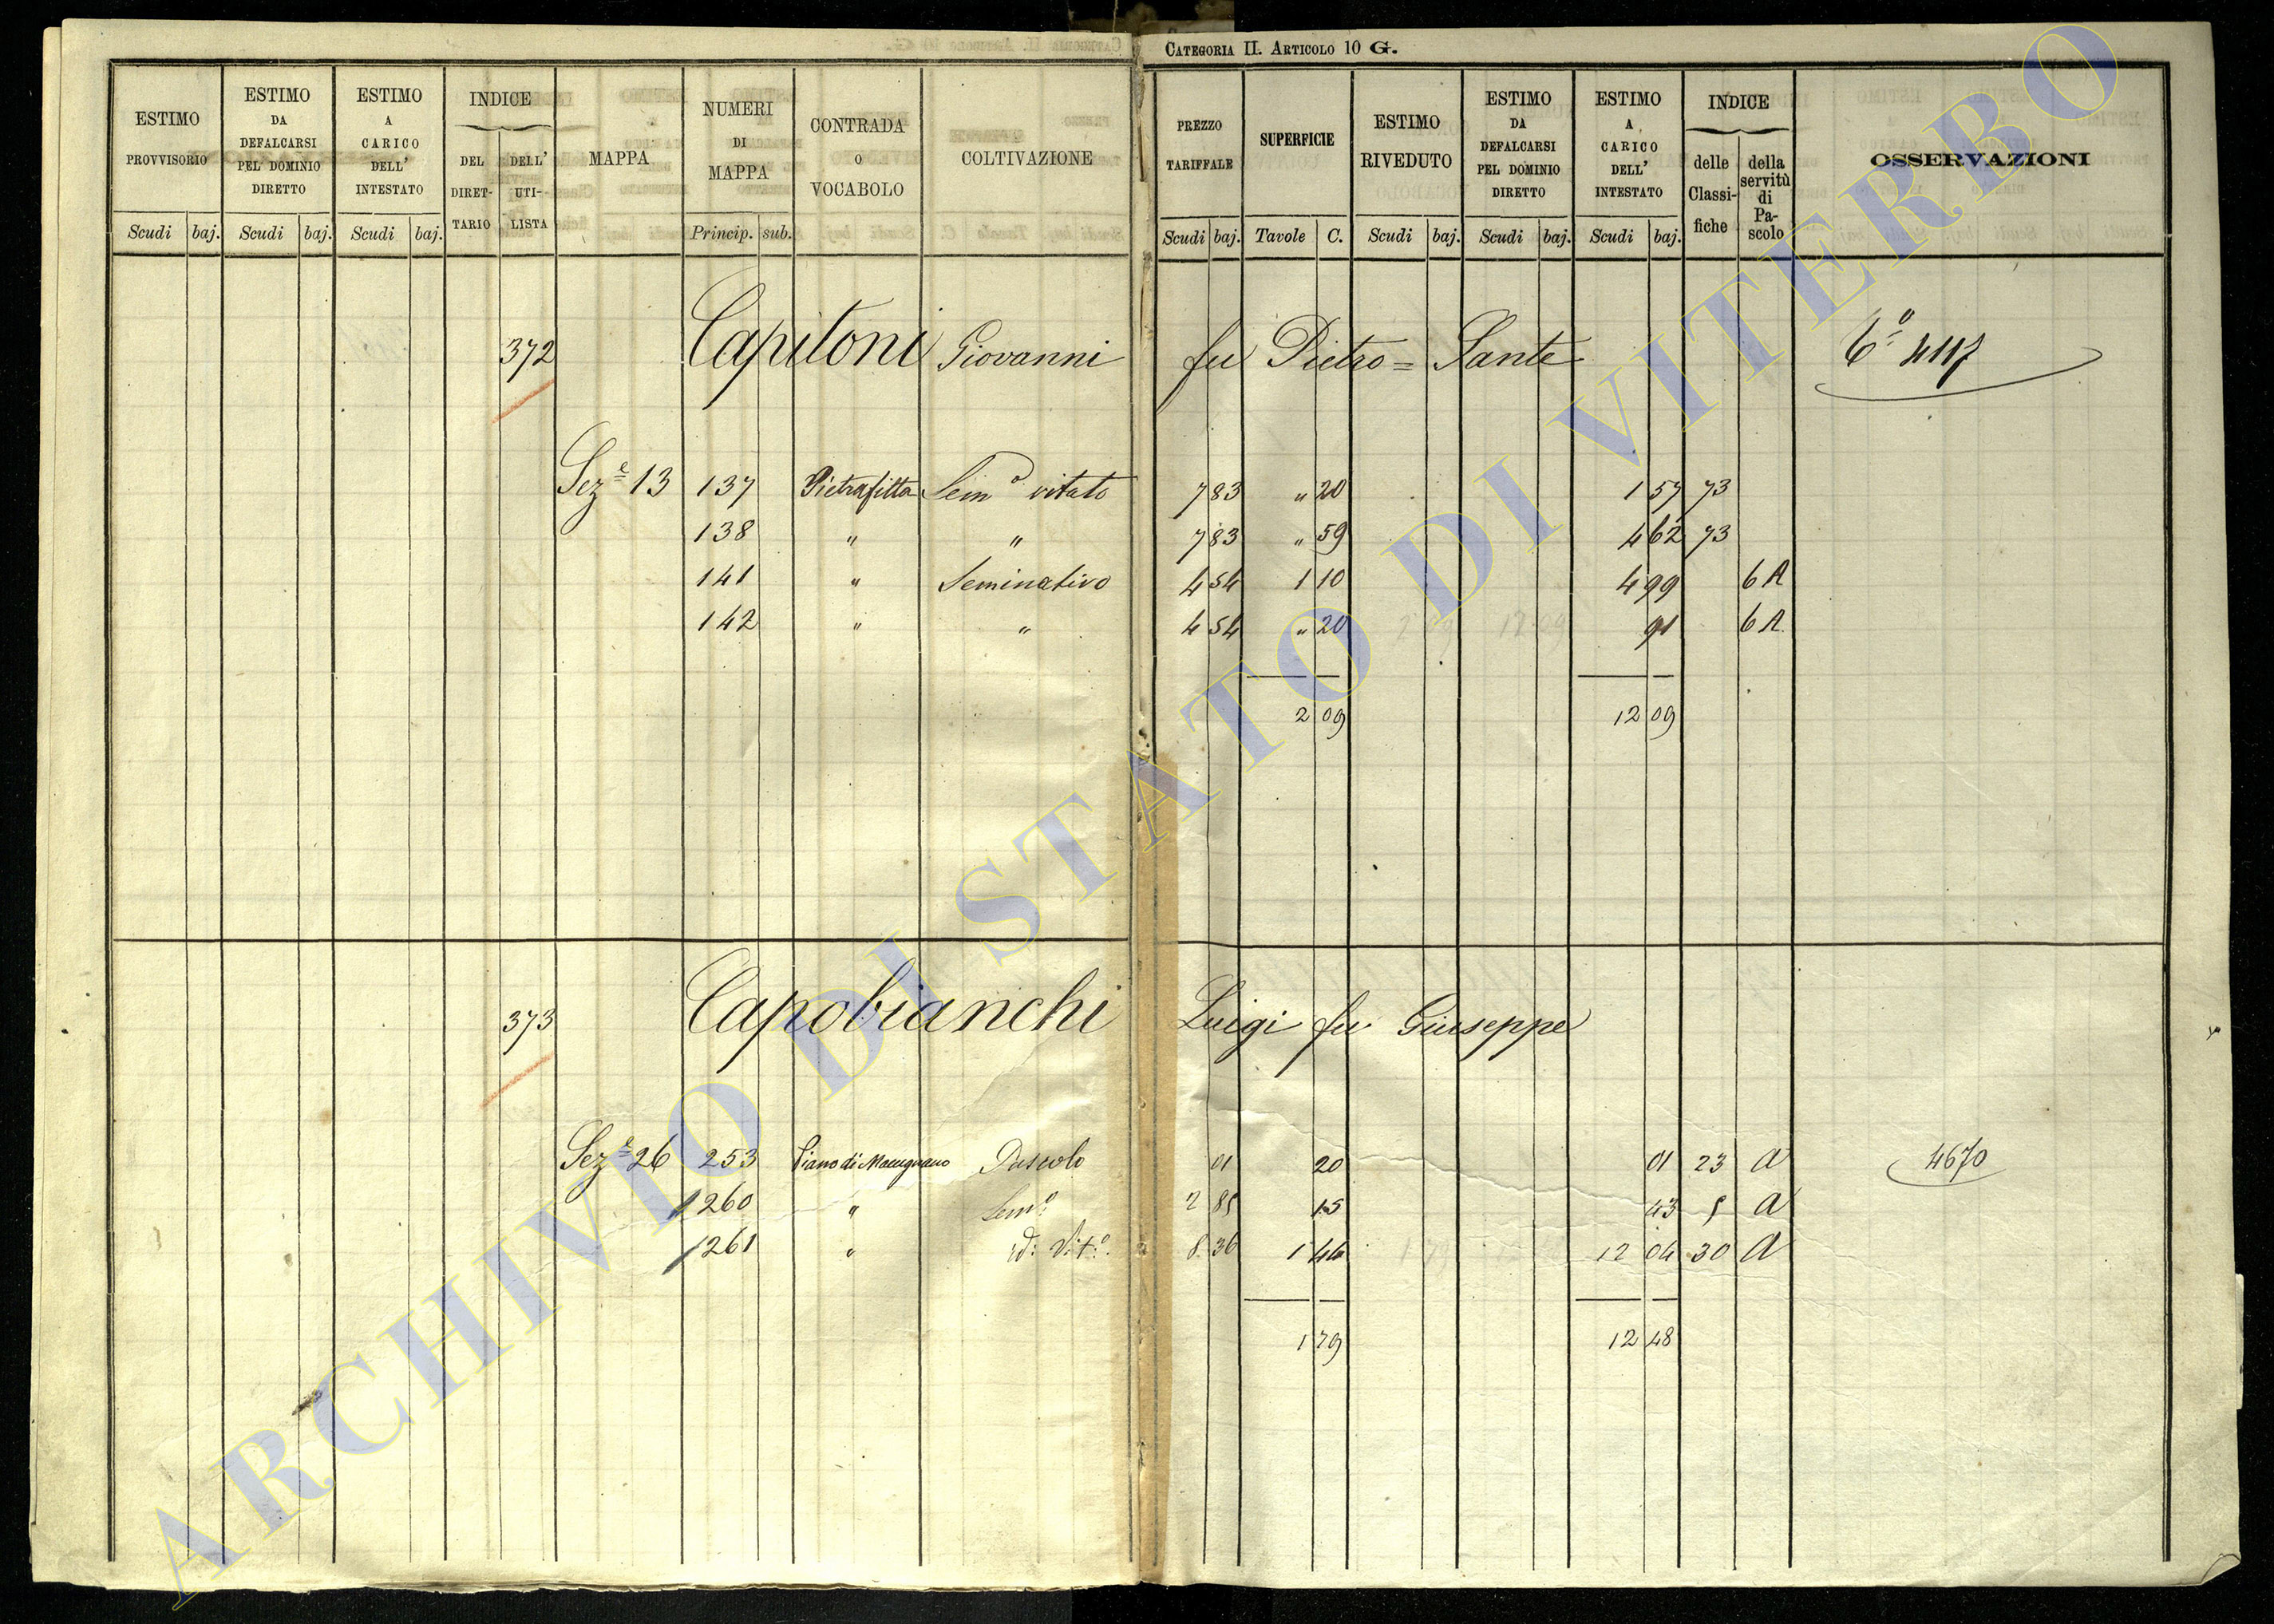 CATEGORIA II. ARTICOLO 10 G.
ESTIMO PROVVISORIO
ESTIMO DA DEFALCARSI PEL DOMINIO DIRETTO
ESTIMO A CARICO DELL' INTESTATO
INDICE
DEL DIRET-TARIO
DELL' UTI-LISTA
MAPPA
NUMERI DI MAPPA
CONTRADA O VOCABOLO
COLTIVAZIONE
PREZZO TARIFFALE
SUPERFICIE
ESTIMO RIVEDUTO
ESTIMO DA DEFALCARSI PEL DOMINIO DIRETTO
ESTIMO A CARICO DELL' INTESTATO
INDICE
delle Classi-fiche
della servitù di Pa-scolo
OSSERVAZIONI
Scudi baj. Scudi baj. Scudi baj. Princip. sub. Scudi baj. Tavole C. Scudi baj. Scudi baj. Scudi baj.
372 Capitoni Giovanni fu Pietro = Sante 4117
Sez.e 13 137 Pietrafitta Sem.o vitato 7 83 " 20 1 57 73
138 " " 7 83 " 59 4 62 73
141 " Seminativo 4 54 1 10 4 99 6 A
142 " " 4 54 " 20 91 6 A
2 09 12 09
373 Capobianchi Luigi fu Giuseppe
Sez.e 26 253 Piano di Macugnano Pascolo 01 20 01 23 A 4670
1260 " Sem.o 2 85 15 43 5 A
1261 " id: Vit.o 8 36 1 44 12 04 30 A
1 79 12 48
ARCHIVIO DI STATO DI VITERBO